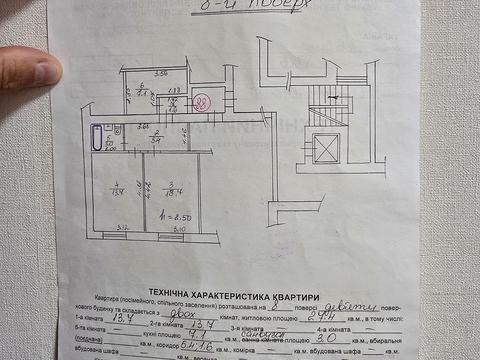 8-й поверх
3.56
6
7.1
1.88
88
3.68
2
5.4
4
13.7
3
h = 2.50
3.12
3.10
ТЕХНІЧНА ХАРАКТЕРИСТИКА КВАРТИРИ
Квартира (посімейного, спільного заселення) розташована на 8 поверсі девʼяти повер-
хового будинку та складається з двох кімнат, житловою площею 27.4 кв.м, в тому числі:
1-а кімната 13.7 2-га кімната 13.7 3-я кімната — 4-а кімната —
5-та кімната — кухні площею 7.1 кв.м., ванна кімната площею 3.0 кв.м., вбиральня
(поєднана) кв.м., коридор 5.4; 1.6 кв.м., комірка — кв.м. вбудована шафа — кв.м.
вбудована шафа кв.м.